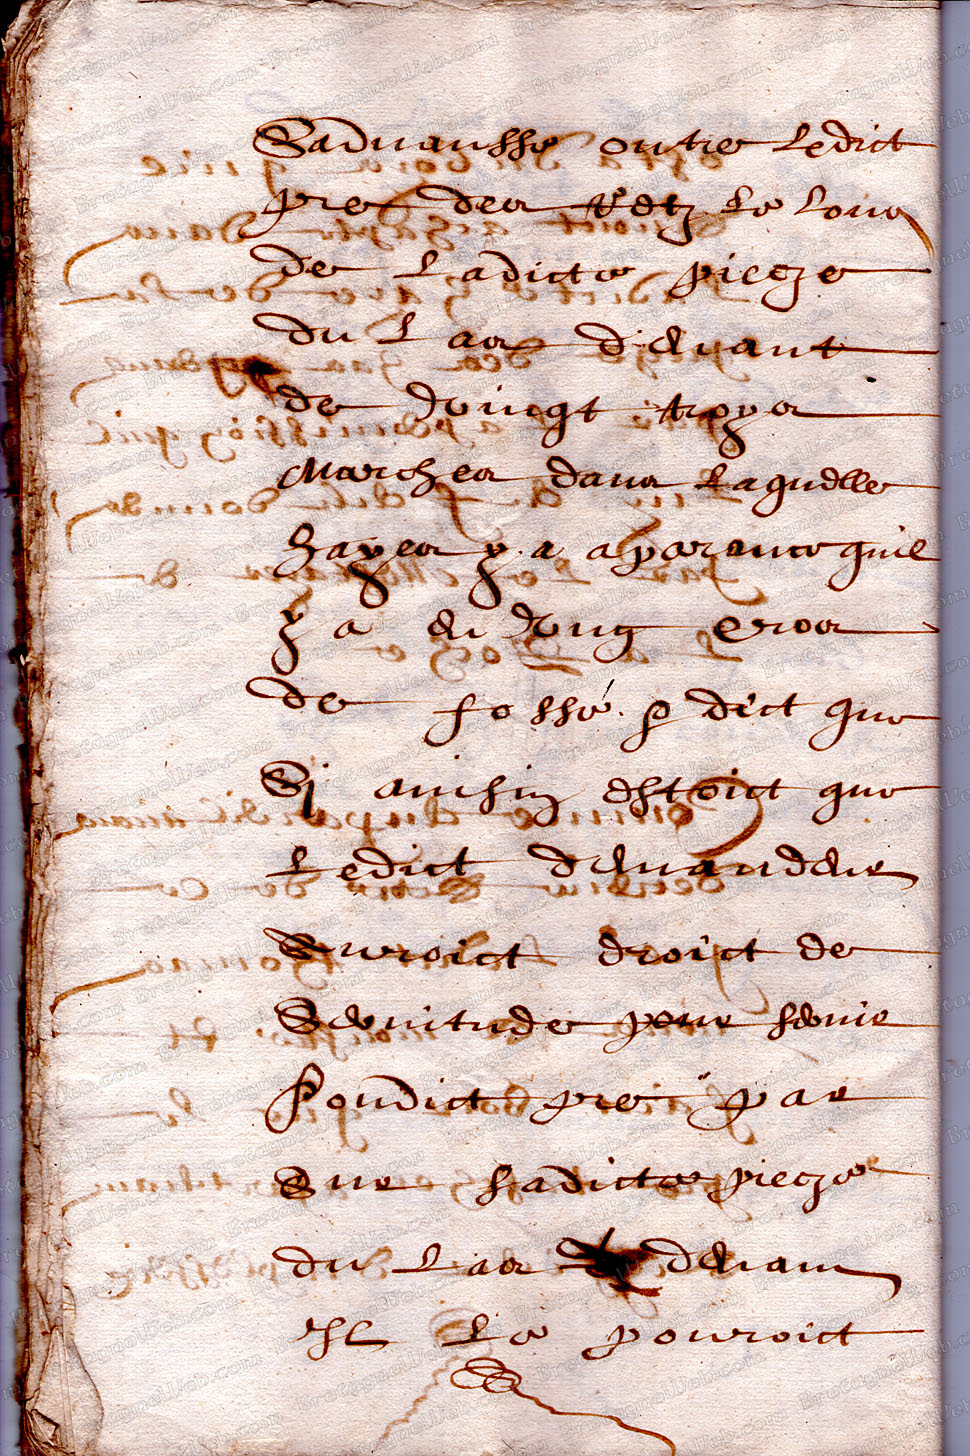 Sadvansse outre Ledict
pre des Le Long
de Ladicte piecze
du Las devant
de vingt troys
Marches dans Laquelle
hayes y a aparance quil
y a eu Vng Croas
de fossé dict que
Sy ainsin estoict que
Ledict demandeur
Auroict droict de
Servitude pour servir
Sondict pre par
Sur Ladicte piecze
du Las devant
Il Le pouroict